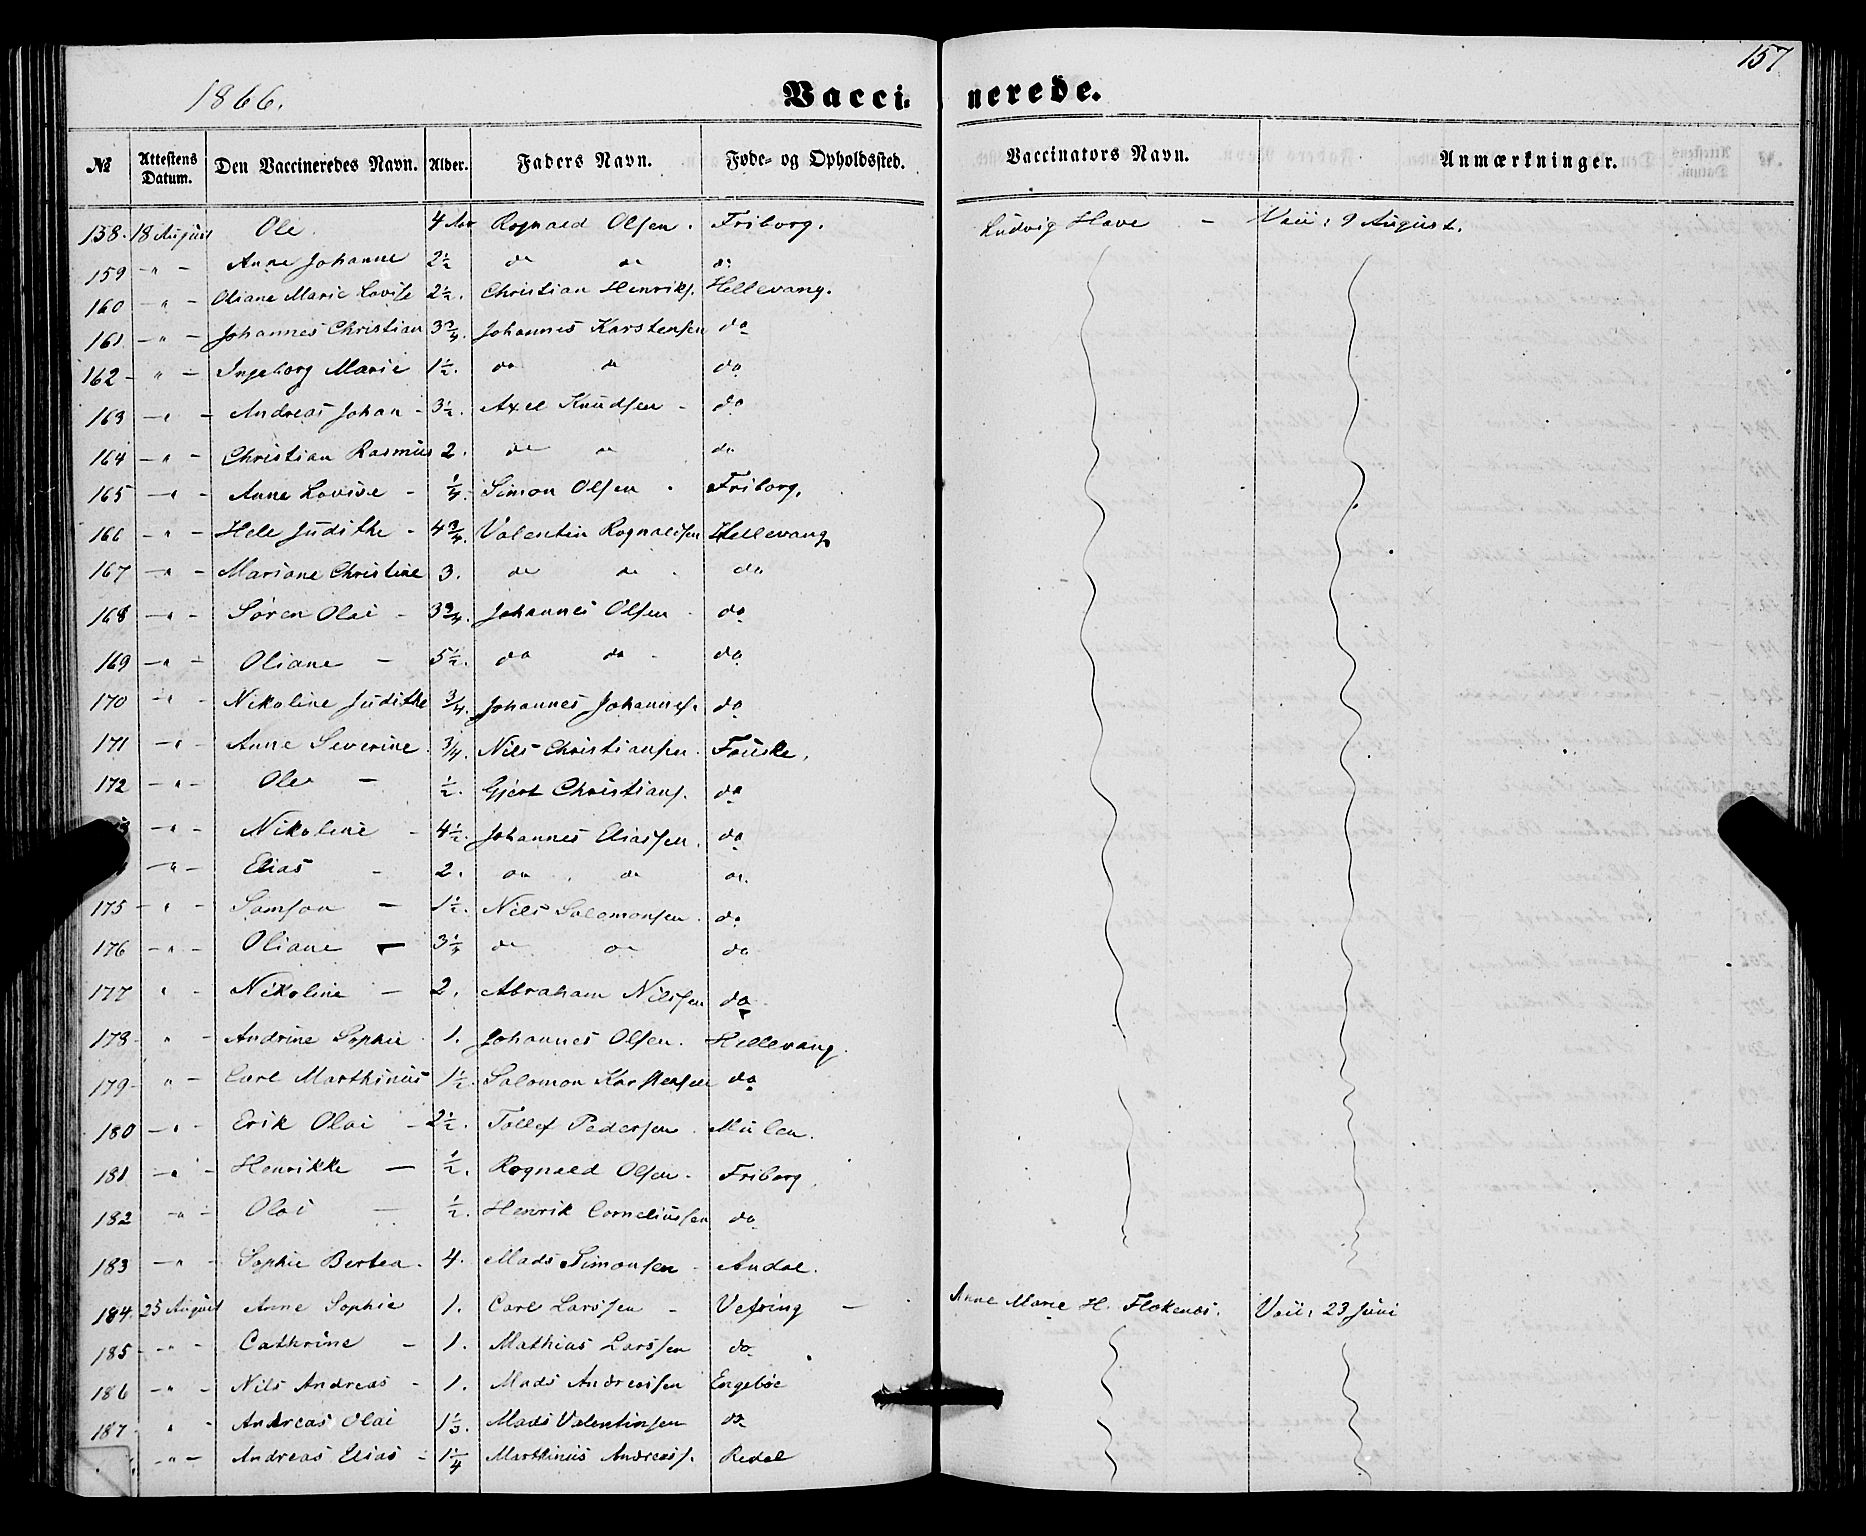 157
1866.
Vacci- nerede.
№ Attestens Datum. Den Vaccineredes Navn. Alder. Faders Navn. Føde- og Opholdssted. Vaccinators Navn. Anmærkninger.
158. 18 August Ole. 4 Aar Rognald Olsen. Friborg. Ludvig Have - Vacc: 9 August.
159 - " - Anne Johanne 2½ do do do
160 - " - Oliane Marie Lovise 2½. Christian Henriks. Hellevang.
161 - " - Johannes Christian 3¾. Johannes Karstensen do
162 - " - Ingeborg Marie 1½. do do do
163 - " - Andreas Johan - 3½. Axel Knudsen - do
164 - " - Christian Rasmus 2. do do do
165 - " - Anne Lovise - ¼. Simon Olsen. Friborg.
166 - " - Hele Judithe - 4¾. Valentin Rognaldsen Hellevang
167 - " - Mariane Christine 3. do do do
168 - " - Søren Olai - 3¾. Johannes Olsen do
169 - " - Oliane - 5½. do do - do
170 - " - Nikoline Judithe ¾. Johannes Johannes. do
171 - " - Anne Severine. ¾. Nils Christiansen. Fauske.
172 - " - Ole - ½. Gjert Christians. do
- " - Nikoline - 4½. Johannes Eliassen. do
- " - Elias - 2. do do do
175 - " - Samson - 1½. Nils Salomonsen. do
176 - " - Oliane - 3¼ do do do
177 " - Nikoline - 2. Abraham Nilssen do
178 - " - Andrine Sophie 1. Johannes Olsen. Hellevang.
179 - " - Carl Marthinus 1½. Salomon Karstensen do
180 - " - Erik Olai - 2½. Tollef Pedersen. Mulen.
181 - " - Henrikke - ½. Rognald Olsen. Friborg.
182 - " - Olai - ½. Henrik Corneliussen do
183 - " - Sophie Bertea. 4. Mads Simonsen - Andal.
184. 25 August Anne Sophie 1. Carl Larssen - Vefring - Anne Marie H. Flokenes. Vacc: 23 Juni
185 - " - Cathrine - 1. Mathias Larssen do
186 - " - Nils Andreas - 1. Mads Andreassen Engebøe
187 " - Andreas Olai 1⅓. Mads Valentinsen do
- " - Andreas Elias - 1¼ Marthinus Andreass. Redal